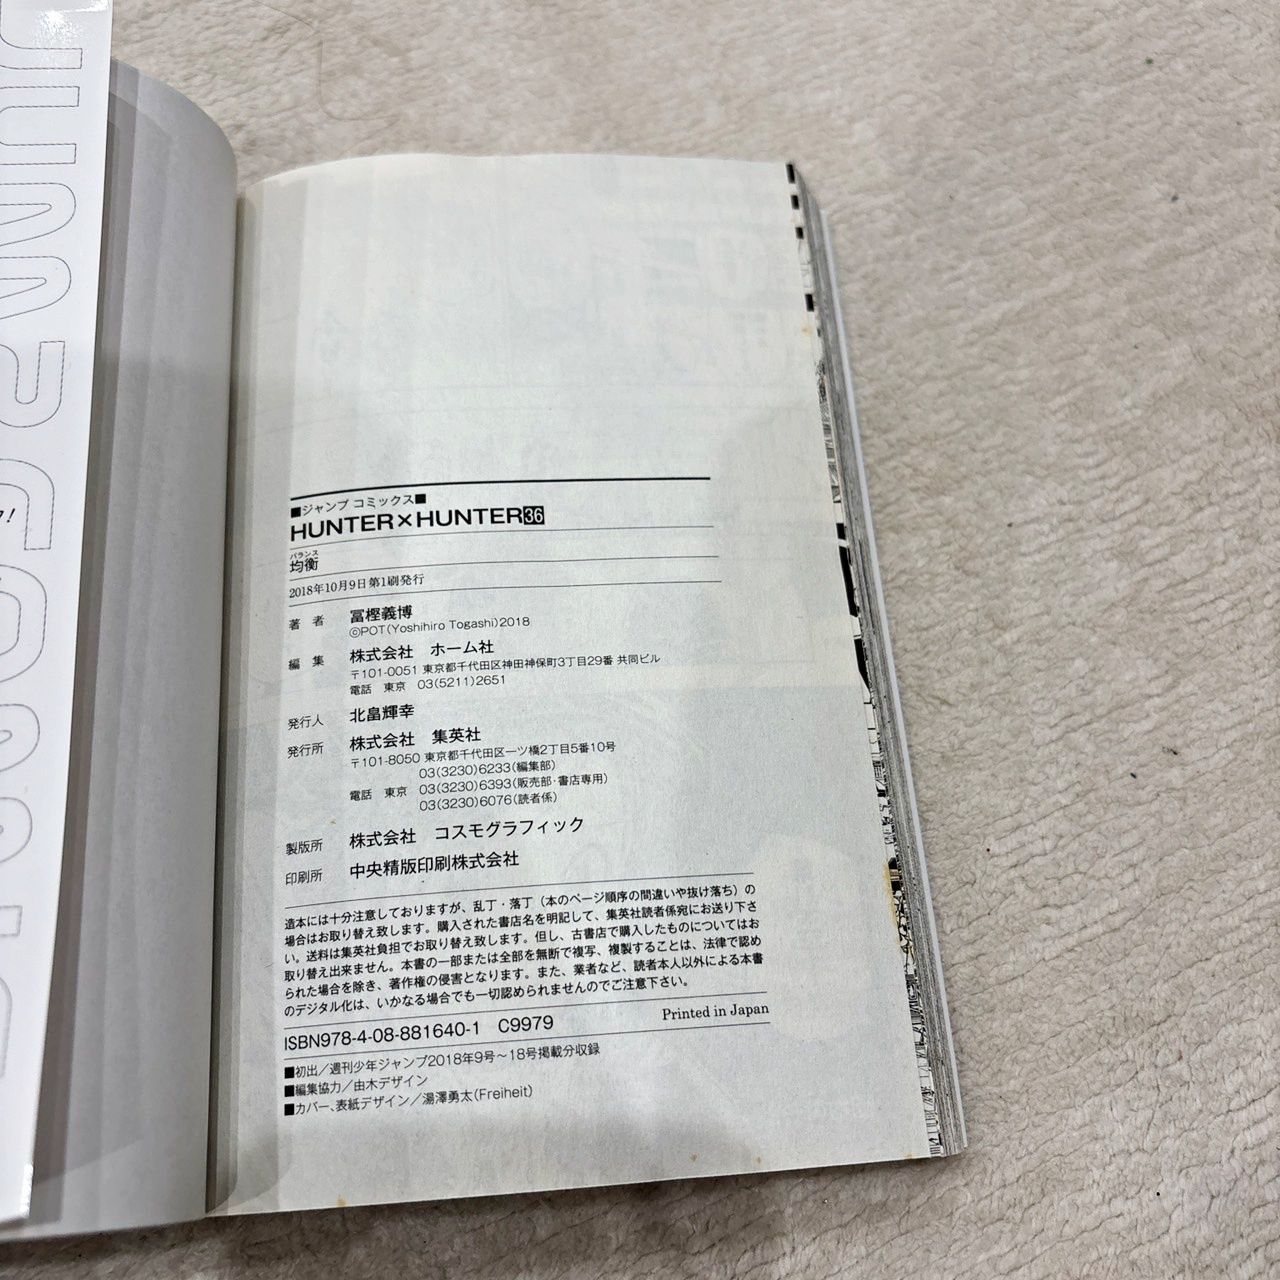 JUMP COMICS
!
■ジャンプ コミックス■
HUNTER×HUNTER36
バランス
均衡
2018年10月9日第1刷発行
著 者 冨樫義博
©POT(Yoshihiro Togashi)2018
編 集 株式会社 ホーム社
〒101-0051 東京都千代田区神田神保町3丁目29番 共同ビル
電話 東京 03(5211)2651
発行人 北畠輝幸
発行所 株式会社 集英社
〒101-8050 東京都千代田区一ツ橋2丁目5番10号
03(3230)6233(編集部)
電話 東京 03(3230)6393(販売部・書店専用)
03(3230)6076(読者係)
製版所 株式会社 コスモグラフィック
印刷所 中央精版印刷株式会社
造本には十分注意しておりますが、乱丁・落丁（本のページ順序の間違いや抜け落ち）の
場合はお取り替え致します。購入された書店名を明記して、集英社読者係宛にお送り下さ
い。送料は集英社負担でお取り替え致します。但し、古書店で購入したものについてはお
取り替え出来ません。本書の一部または全部を無断で複写、複製することは、法律で認め
られた場合を除き、著作権の侵害となります。また、業者など、読者本人以外による本書
のデジタル化は、いかなる場合でも一切認められませんのでご注意下さい。
ISBN978-4-08-881640-1 C9979 Printed in Japan
■初出／週刊少年ジャンプ2018年9号～18号掲載分収録
■編集協力／由木デザイン
■カバー、表紙デザイン／湯澤勇太(Freiheit)